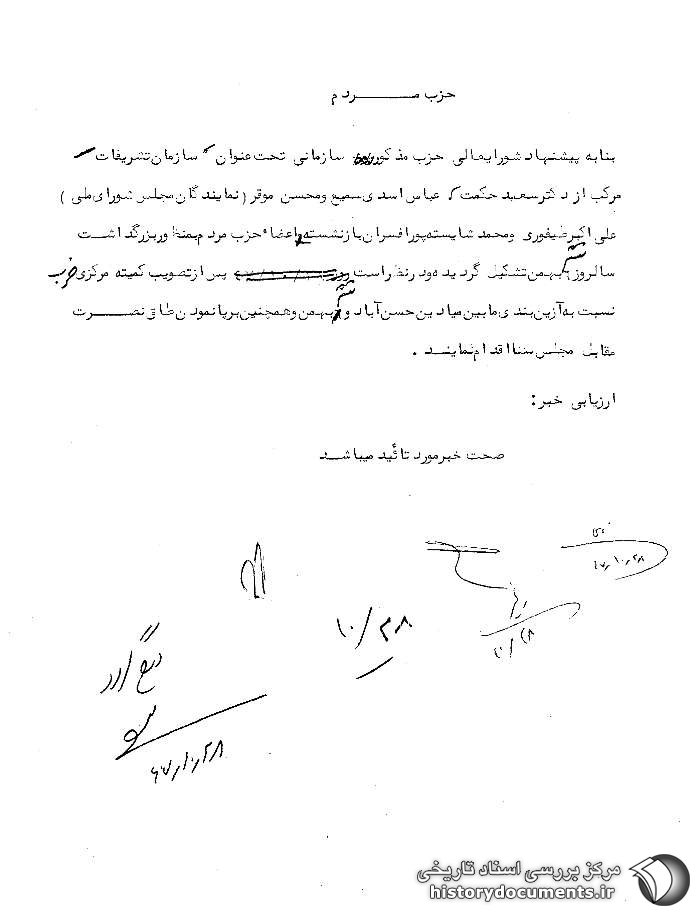 حزب مـــــردم
بنا به پیشنهاد شورایعالی حزب مذکور سازمانی تحت عنوان " سازمان تشریفات "
مرکب از دکتر سعید حکمت عباس اسدی سمیع و محسن موقر ( نمایندگان مجلس شورای ملی )
علی اکبر طیفوری و محمد شایسته پور افسران بازنشسته و اعضاء حزب مردم بمنظور بزرگداشت
سالروز ششم بهمن تشکیل گردیده و در نظر است پس از تصویب کمیته مرکزی حزب
نسبت به آزین بندی مابین میادین حسن آباد و ششم بهمن و همچنین برپا نمودن طاق نصـــرت
مقابل مجلس سنا اقدام نماینـد .
ارزیابی خبر :
صحت خبر مورد تائید میباشـــد
۴۷/۱۰/۲۸
۱۰/۲۸
۱۰/۲۸
۴۷/۱۰/۲۸
مرکز بررسی اسناد تاریخی
historydocuments.ir